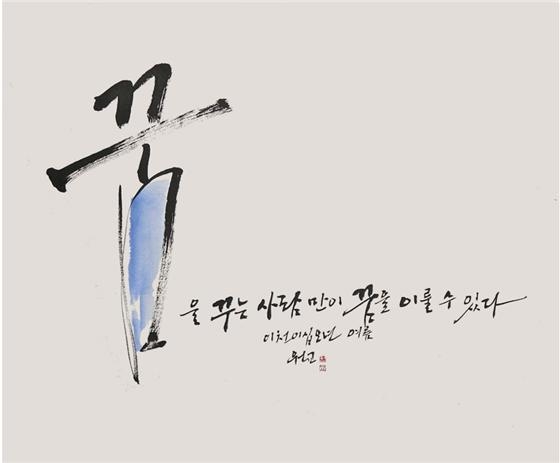 꿈
을 꾸는 사람만이 꿈을 이룰 수 있다
이천이십오년 여름